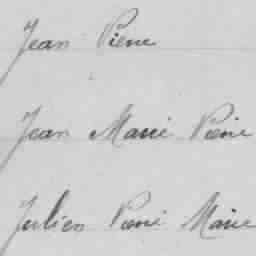 Jean Pierre
Jean Marie Pierre
Julien Pierre Marie